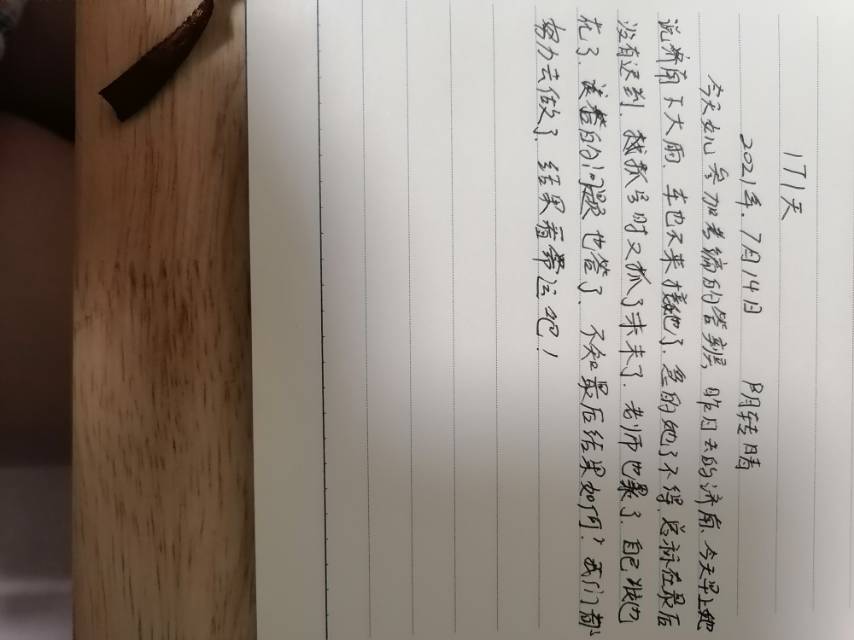 171天
2021年.7月14日 阴转晴
今天女儿参加考编的答辩,昨日去的济南、今天早上她
说济南下大雨、车也不来接她了、急的她了不得,总标在最后
没有迟到、抓号时又抓了末末了、老师也累了、自己状态
花了、该答的问题也答了、不知最后结果如何?我们都
努力去做了、结果看命运吧!